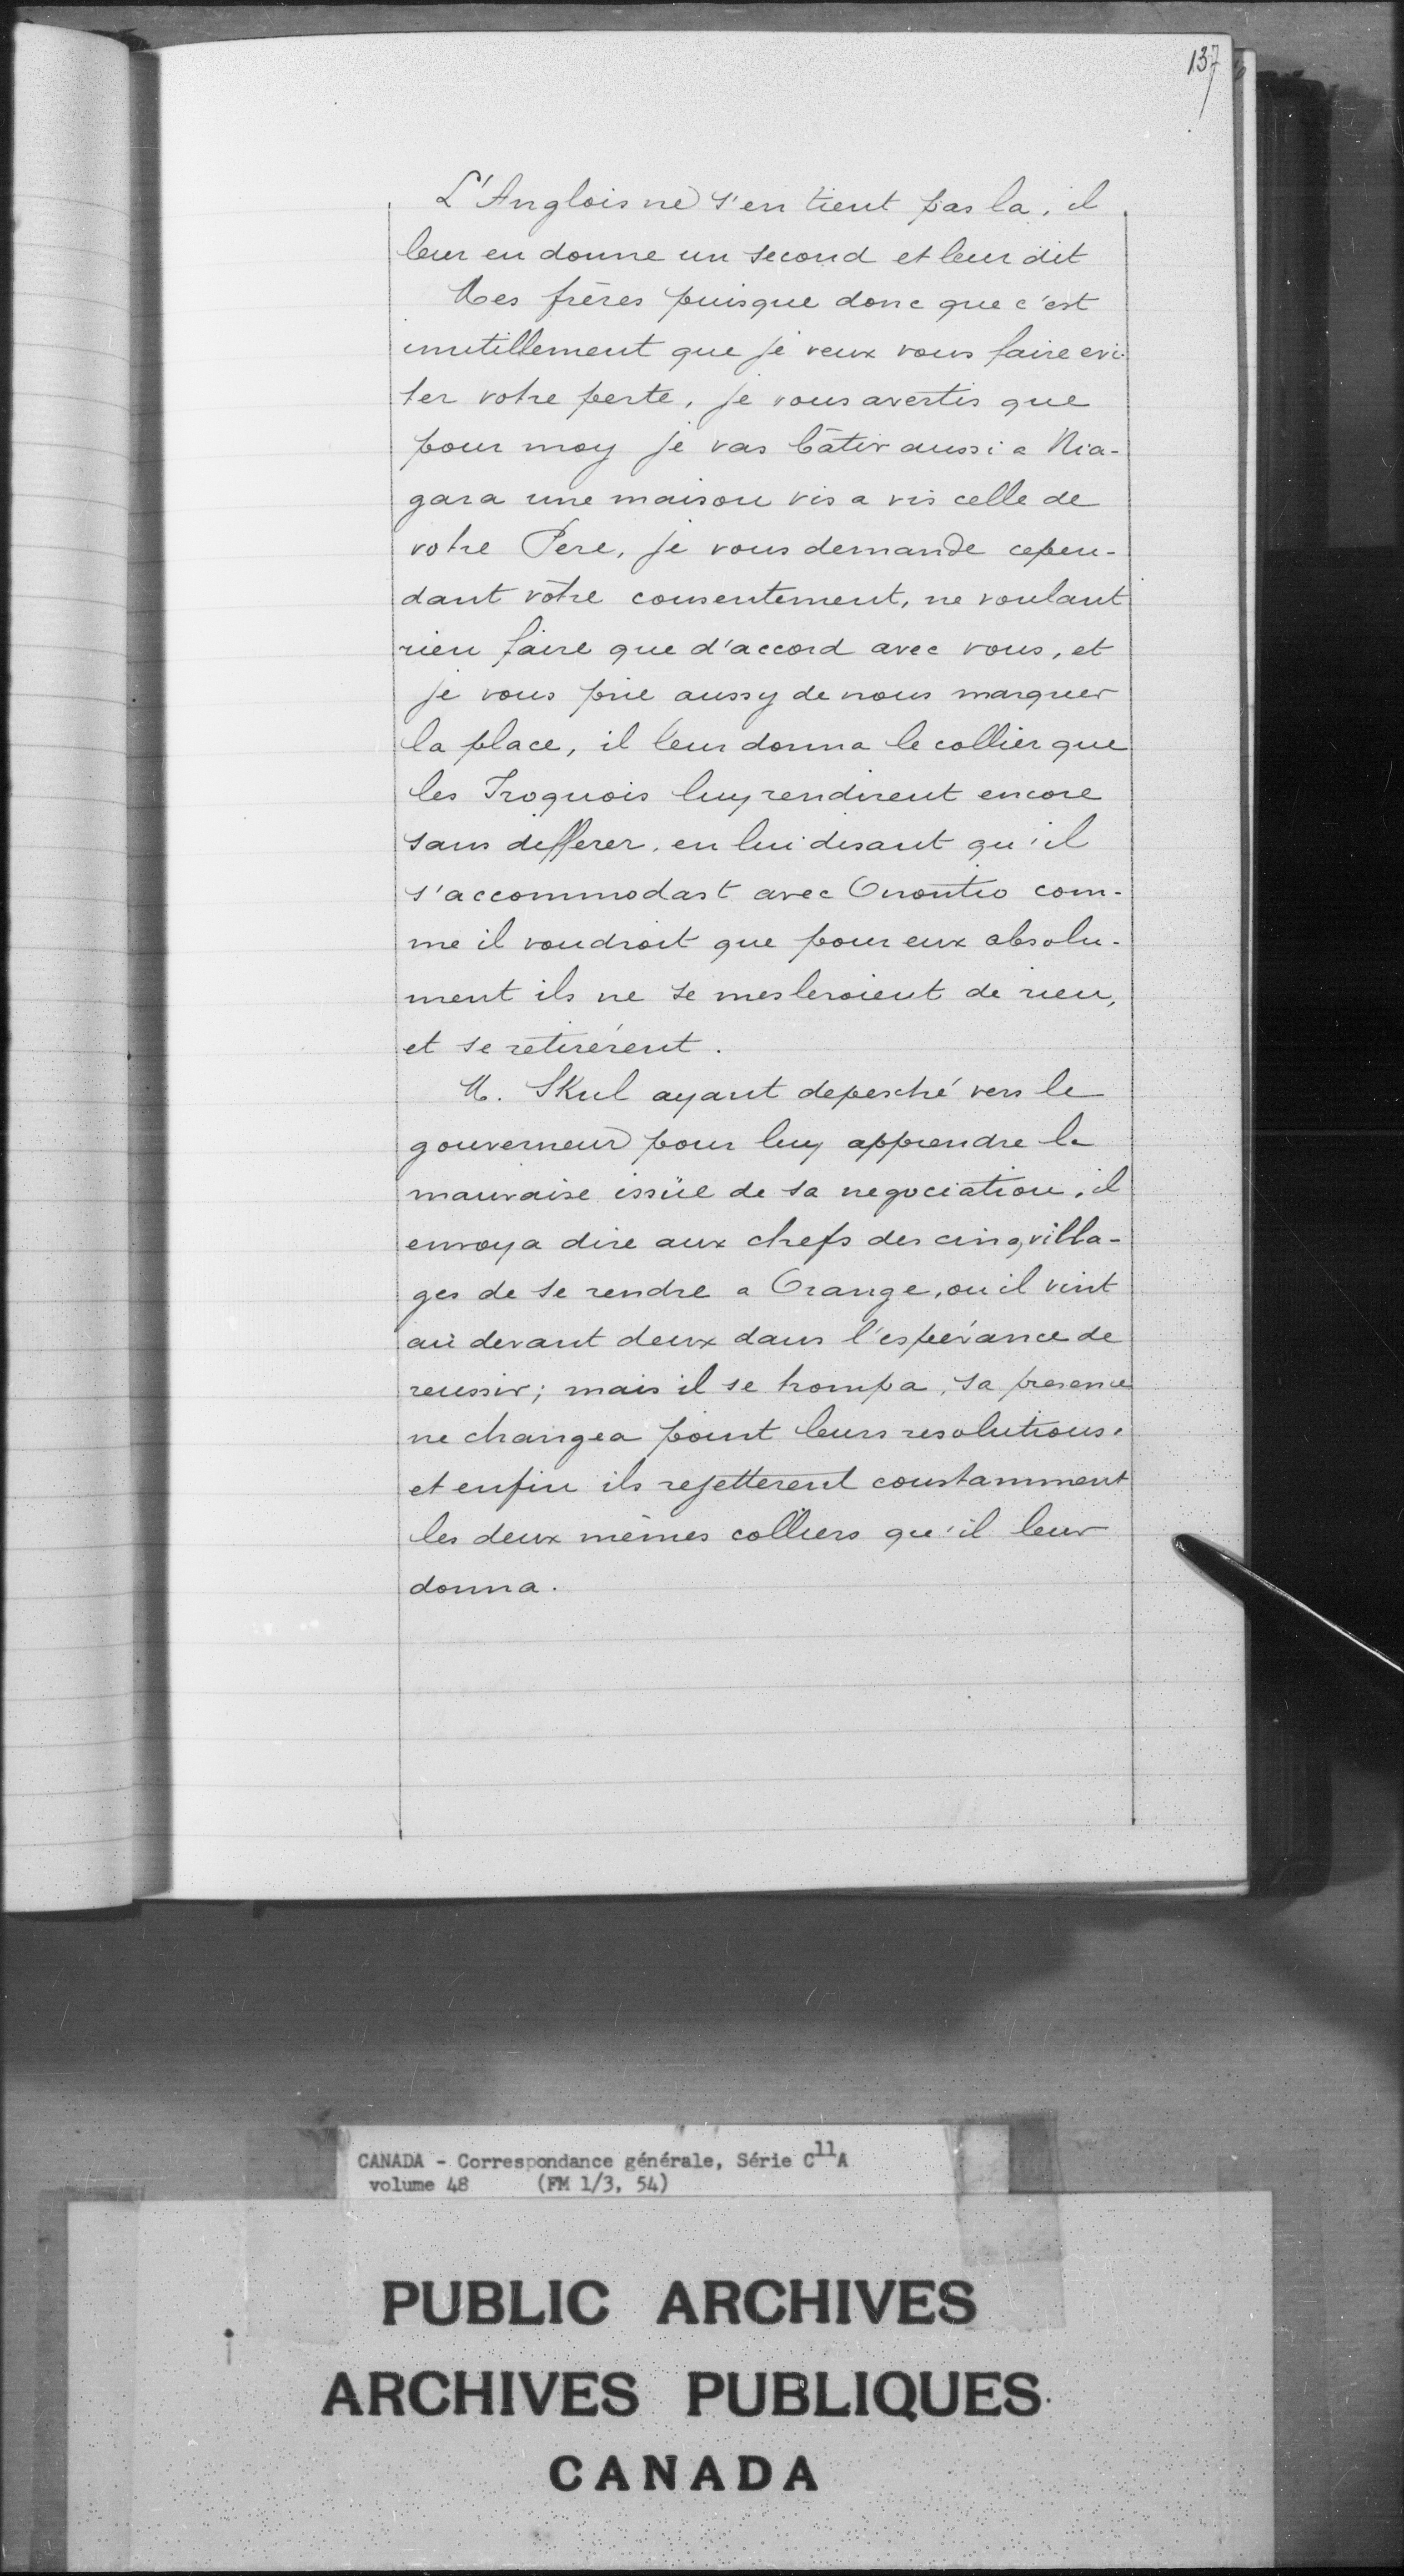 137
L'Anglois ne s'en tient pas la, il
leur en donne un second et leur dit
Mes frères puisque donc que c'est
inutillement que je veux vous faire evi-
ter votre perte, je vous avertis que
pour moy je vas bâtir aussi a Nia-
gara une maison vis a vis celle de
votre Pere, je vous demande cepen-
dant vôtre consentement, ne voulant
rien faire que d'accord avec vous, et
je vous prie aussy de nous marquer
la place, il leur donna le collier que
les Iroquois luy rendirent encore
sans differer, en lui disant qu'il
s'accommodast avec Onontio com-
me il voudroit que pour eux absolu-
ment ils ne se mesleroient de rien,
et se retirèrent.
M. Skul ayant depesché vers le
gouverneur pour luy apprendre la
mauvaise issüe de sa negociation, il
envoya dire aux chefs des cinq villa-
ges de se rendre a Orange, ou il vint
au devant deux dans l'espérance de
reussir; mais il se trompa, sa presence
ne changea point leurs resolutions,
et enfin ils rejetterent constamment
les deux mêmes colliers qu'il leur
donna.
CANADA - Correspondance générale, Série C11A
volume 48 (FM 1/3, 54)
PUBLIC ARCHIVES
ARCHIVES PUBLIQUES
CANADA